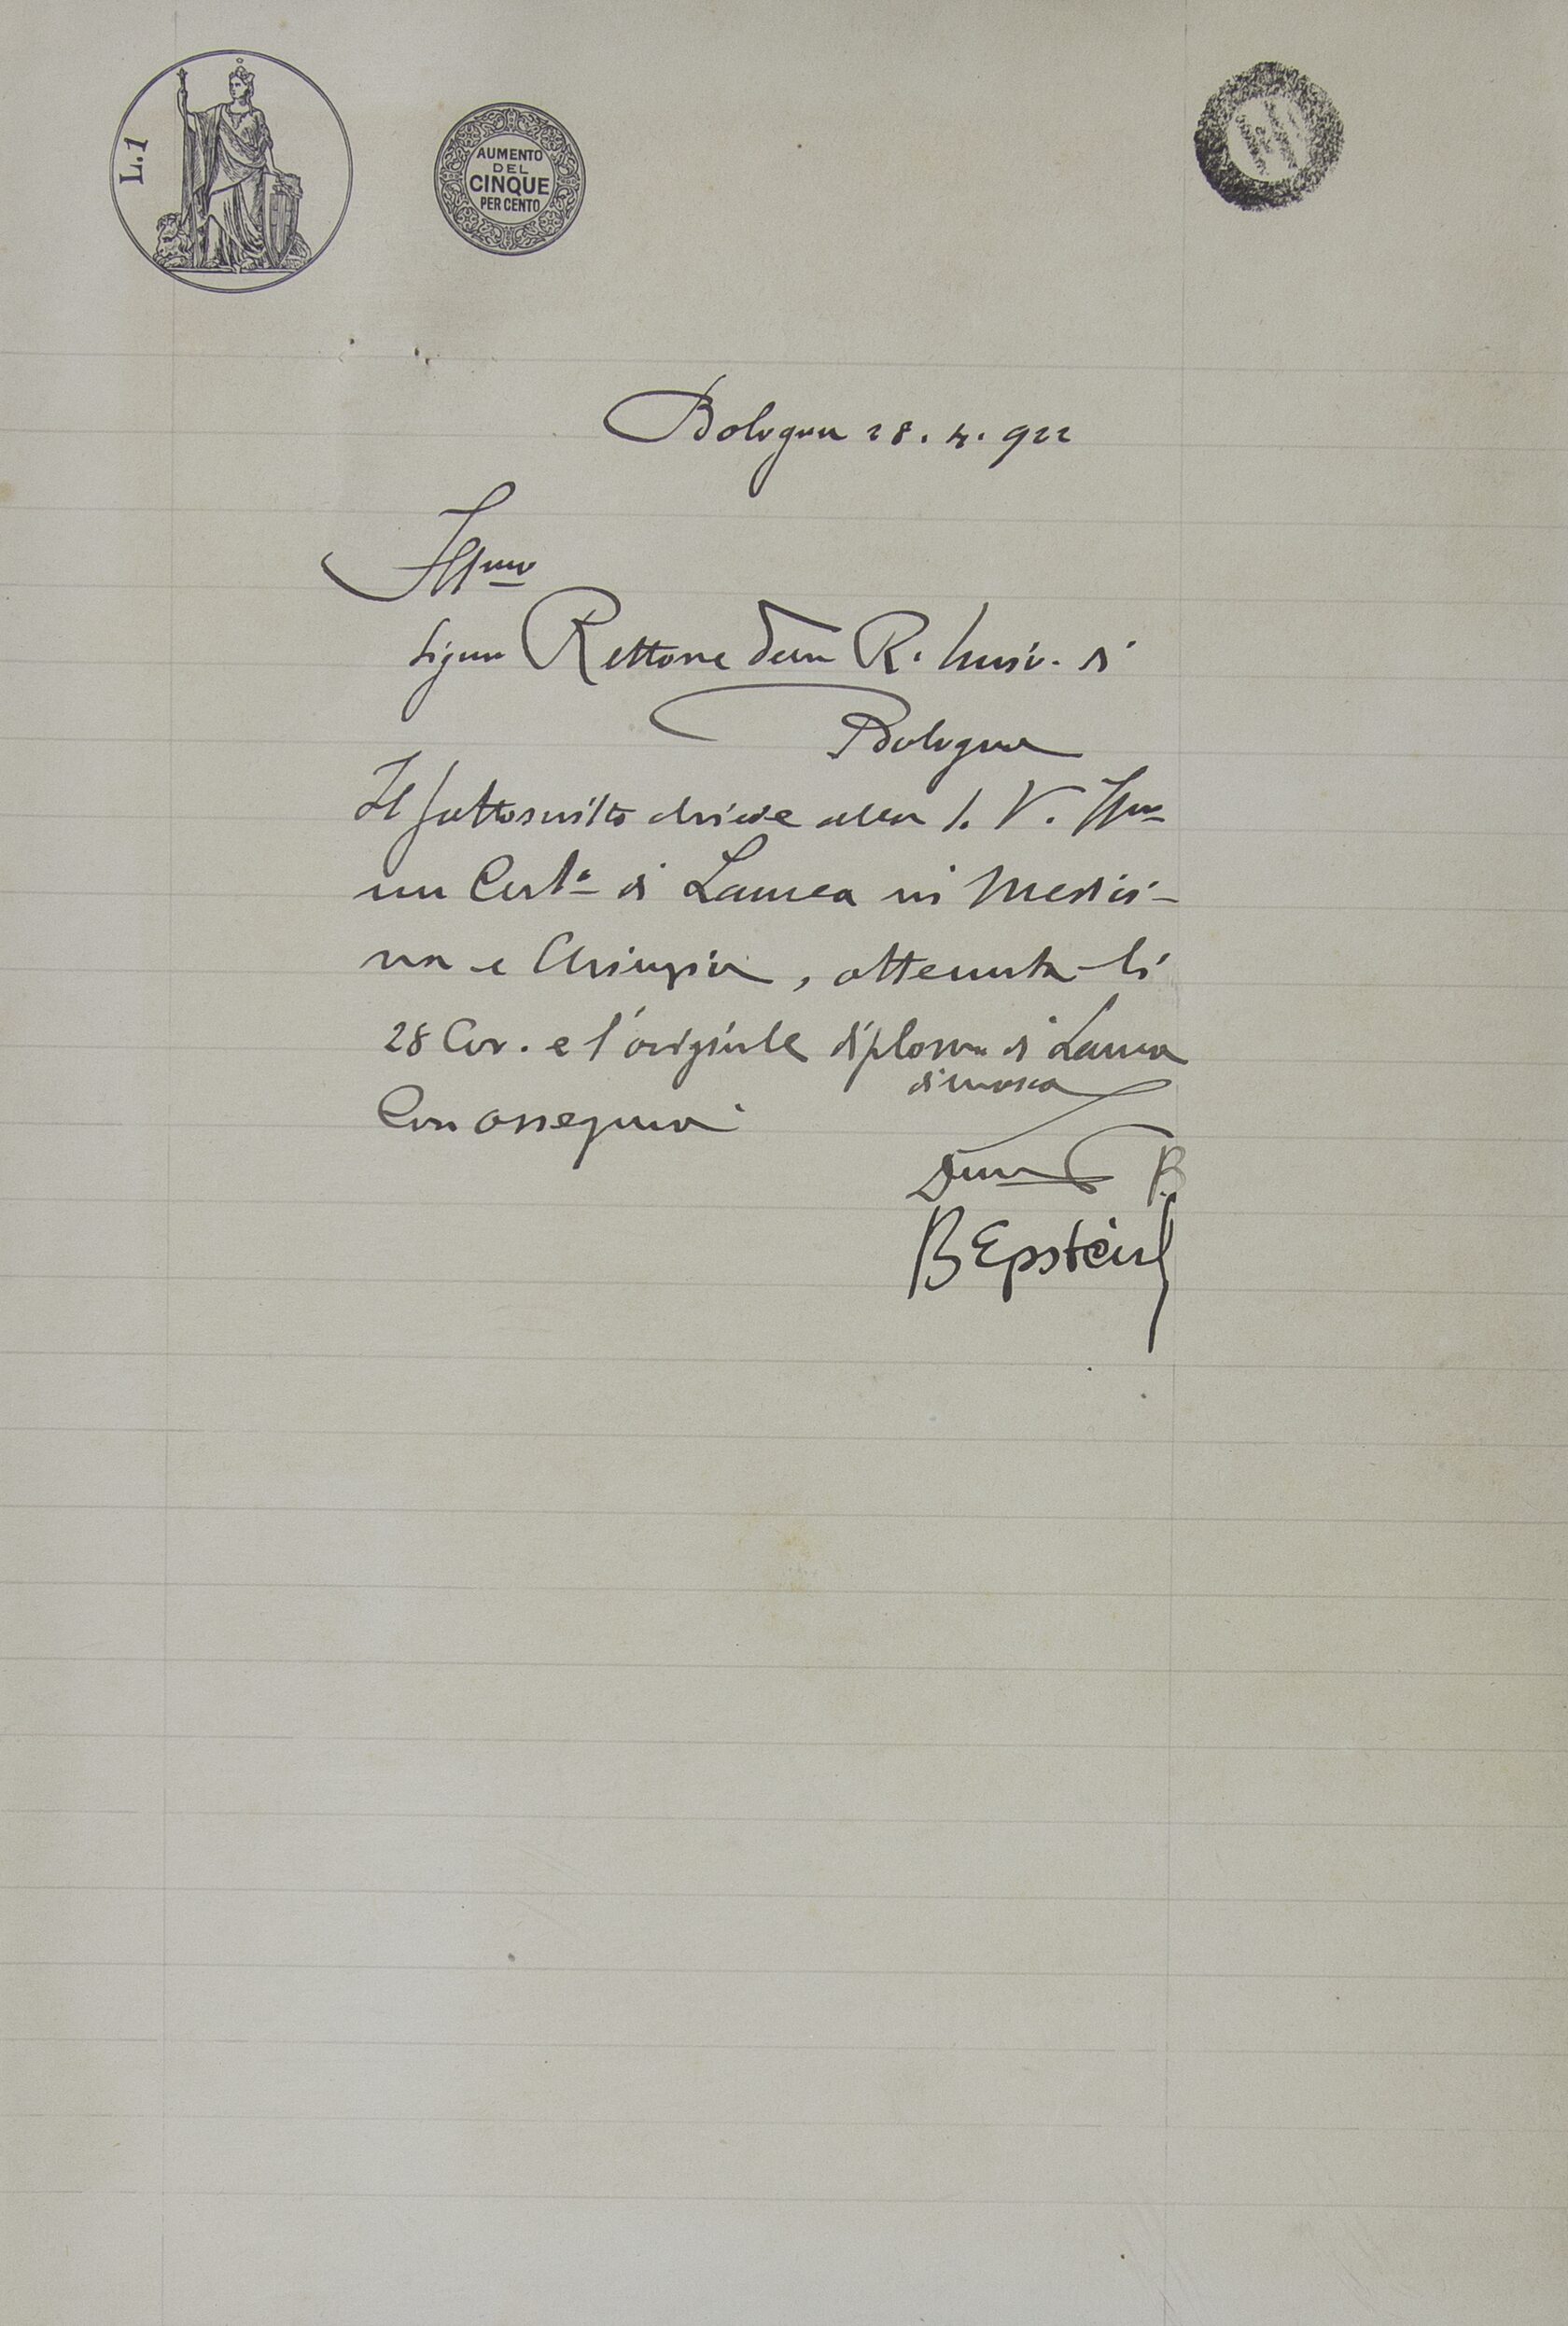 L.1
AUMENTO
DEL
CINQUE
PER CENTO
Bologna 28. 4. 922
Illmo
Signor Rettore della R. Univ. di
Bologna
Il sottoscritto chiede alla S. V. Illma
un Certo di Laurea in Medici-
na e Chirurgia, ottenuta li
28 Cor. e l'originale diploma di Laurea
Con ossequia
B Epstein